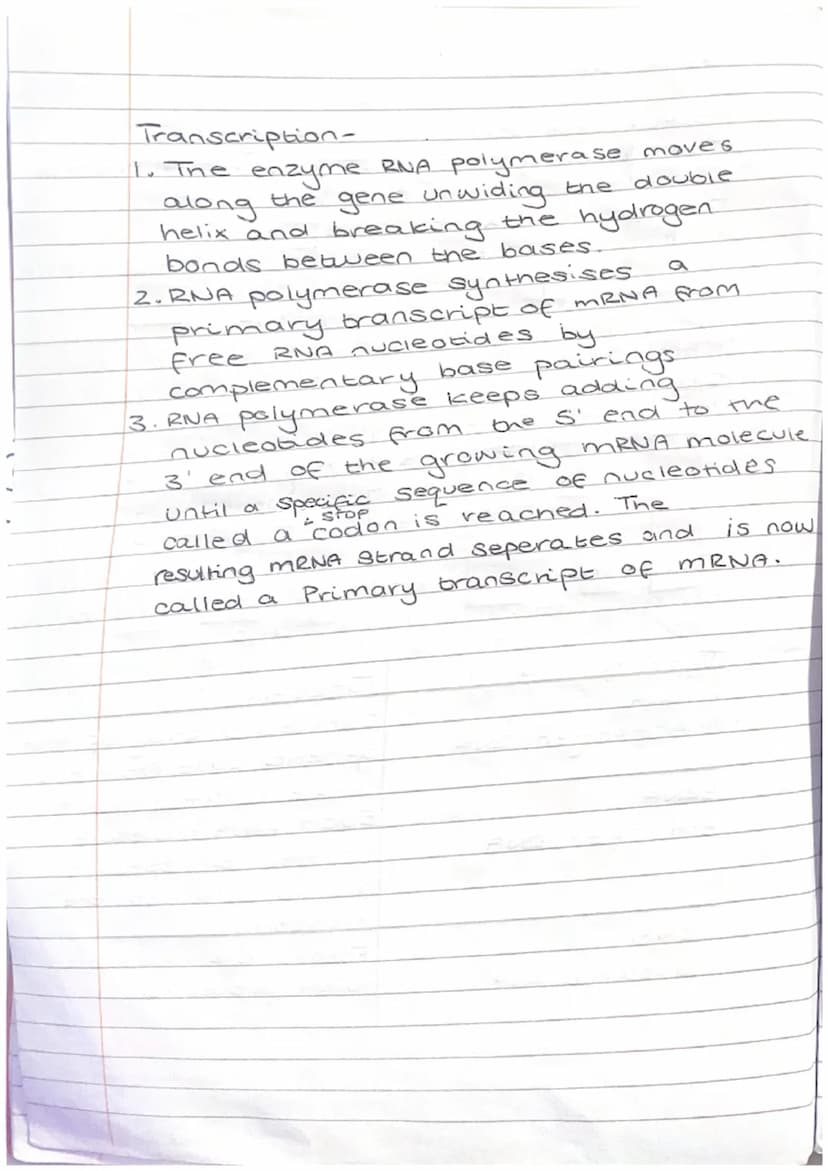 Transcription-
1. The enzyme RNA polymerase moves
along the gene unwiding the double
helix and breaking the hydrogen
bonds between the bases.
2. RNA polymerase synthesises a
primary transcript of mRNA from
free RNA nucleotides by
complementary base pairings
3. RNA polymerase keeps adding
nucleotides from the 5' end to the
3' end of the growing mRNA molecule
until a specific sequence of nucleotides
called a stop codon is reached. The
resulting mRNA strand seperates and is now
called a Primary transcript of mRNA.